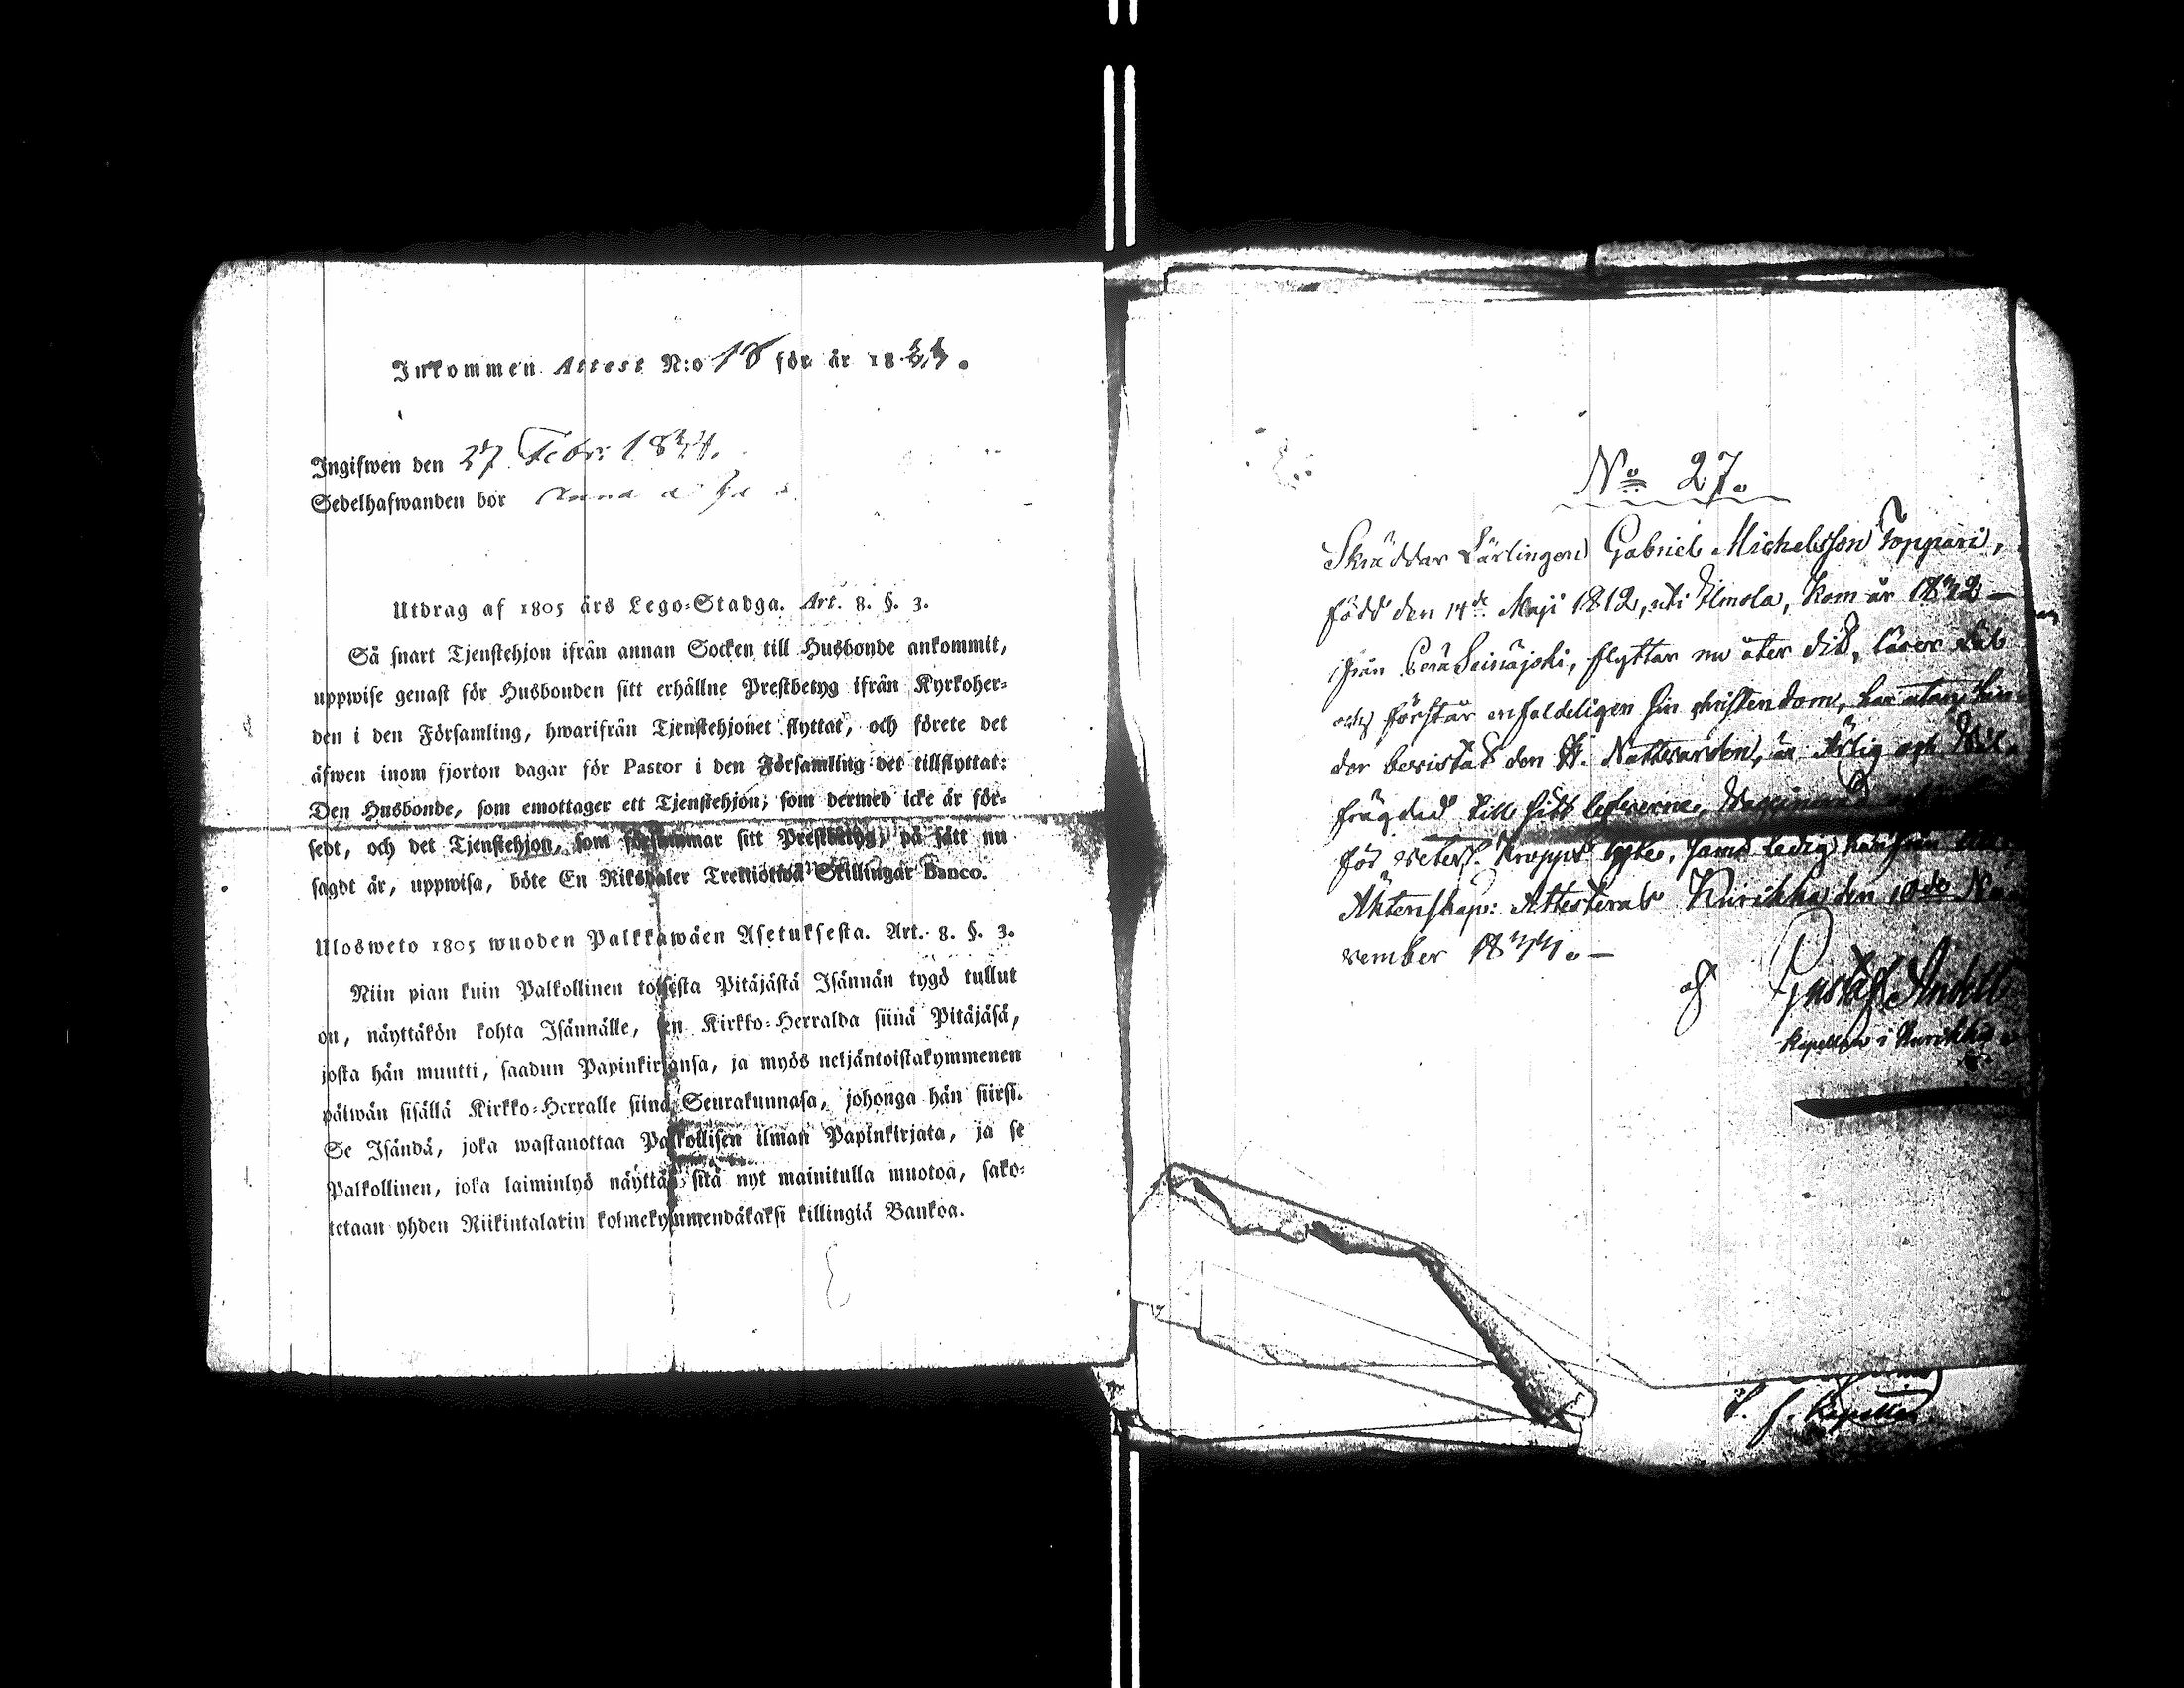 Inkommen Attest N:o 18 för år 18
Ingifwen den 27 Febr: 1834.
Sedelhafwanden bor
Utdrag af 1805 års Lego-Stadga. Art. 8. §. 3.
Så snart Tjenstehjon ifrån annan Socken till Husbonde ankommit,
uppwise genast för Husbonden sitt erhållne Prestbetyg ifrån Kyrkoher-
den i den Församling, hwarifrån Tjenstehjonet flyttat, och förete det
äfwen inom fjorton dagar för Pastor i den Församling det tillflyttat:
Den Husbonde, som emottager ett Tjenstehjon, som dermed icke är för-
sedt, och det Tjenstehjon, som försummar sitt Prestbetyg, på sätt nu
sagdt är, uppwisa, böte En Riksdaler Trettiotwå Skillingar Banco.
Ulosweto 1805 wuoden Palkkawäen Asetuksesta. Art. 8. §. 3.
Niin pian kuin Palkollinen toisesta Pitäjästä Isännän tygö tullut
on, näyttäkön kohta Isännälle, sen Kirkko-Herralda siinä Pitäjäsä,
josta hän muutti, saadun Papinkirjansa, ja myös neljäntoistakymmenen
päiwän sisällä Kirkko-Herralle siinä Seurakunnasa, johonga hän siirsi.
Se Isändä, joka wastanottaa Palkollisen ilman Papinkirjata, ja se
Palkollinen, joka laiminlyö näyttää sitä nyt mainitulla muotoa, sako-
tetaan yhden Riikintalarin kolmekymmendäkaksi killingiä Bankoa.
No 27.
Skräddar Lärlingen Gabriel Michelsson Toppari,
född den 14de Maji 1812, uti Ilmola, kom år 1832
från Perä Seinäjoki, flyttar nu åter dit, läser
och förstår enfaldeligen sin christendom, har utan hin-
der bevistat den H. Nattvarden, är Ärlig och Wäl-
frägdad till sitt lefverne, Vaccinerad
för veterl. kropps lyte, samt ledig härifrån till
Äktenskap: Attesteras Kurikka den 10de No-
vember 1833.
af Gustaf Andell
Kapellan i Kurikka
Kapellan